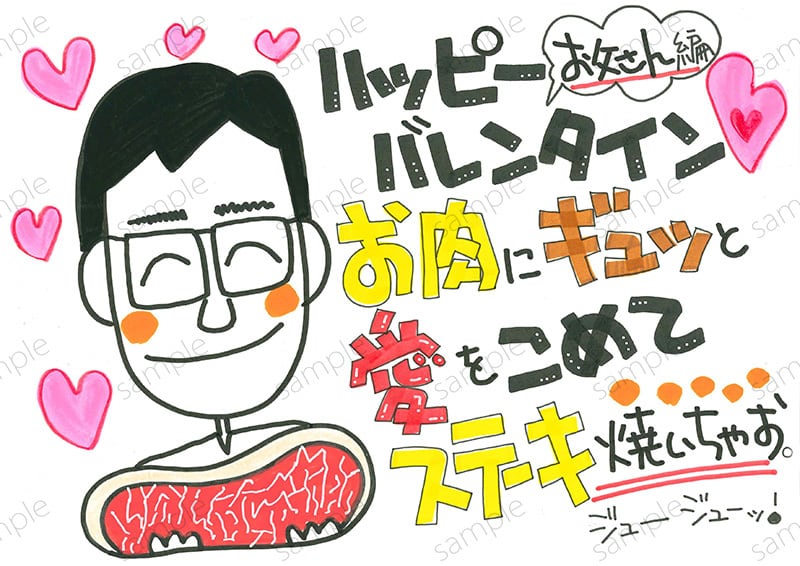 お父さん編
ハッピー
バレンタイン
お肉にギュッと
愛をこめて
ステーキ焼いちゃお。
ジュー ジューッ!
sample